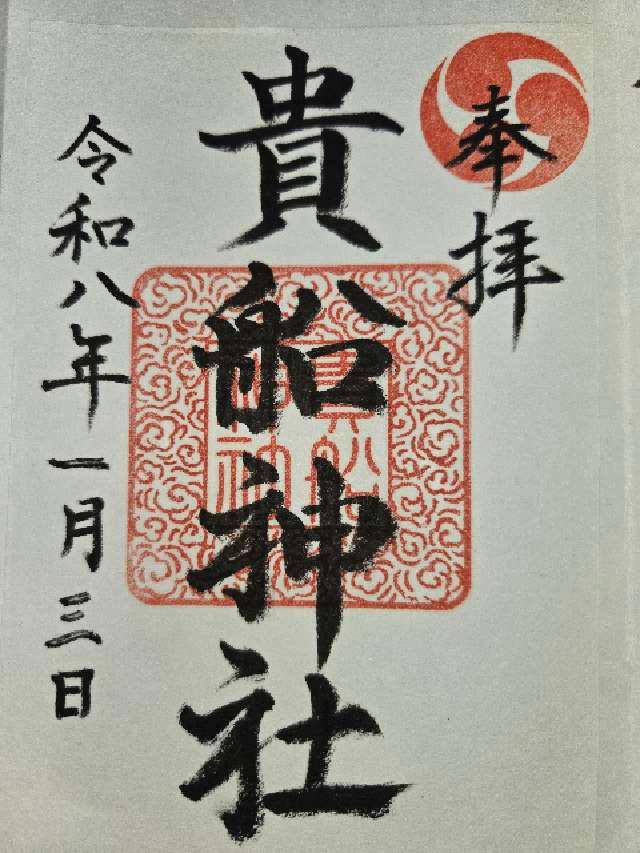 奉拝
貴船神社
令和八年一月三日